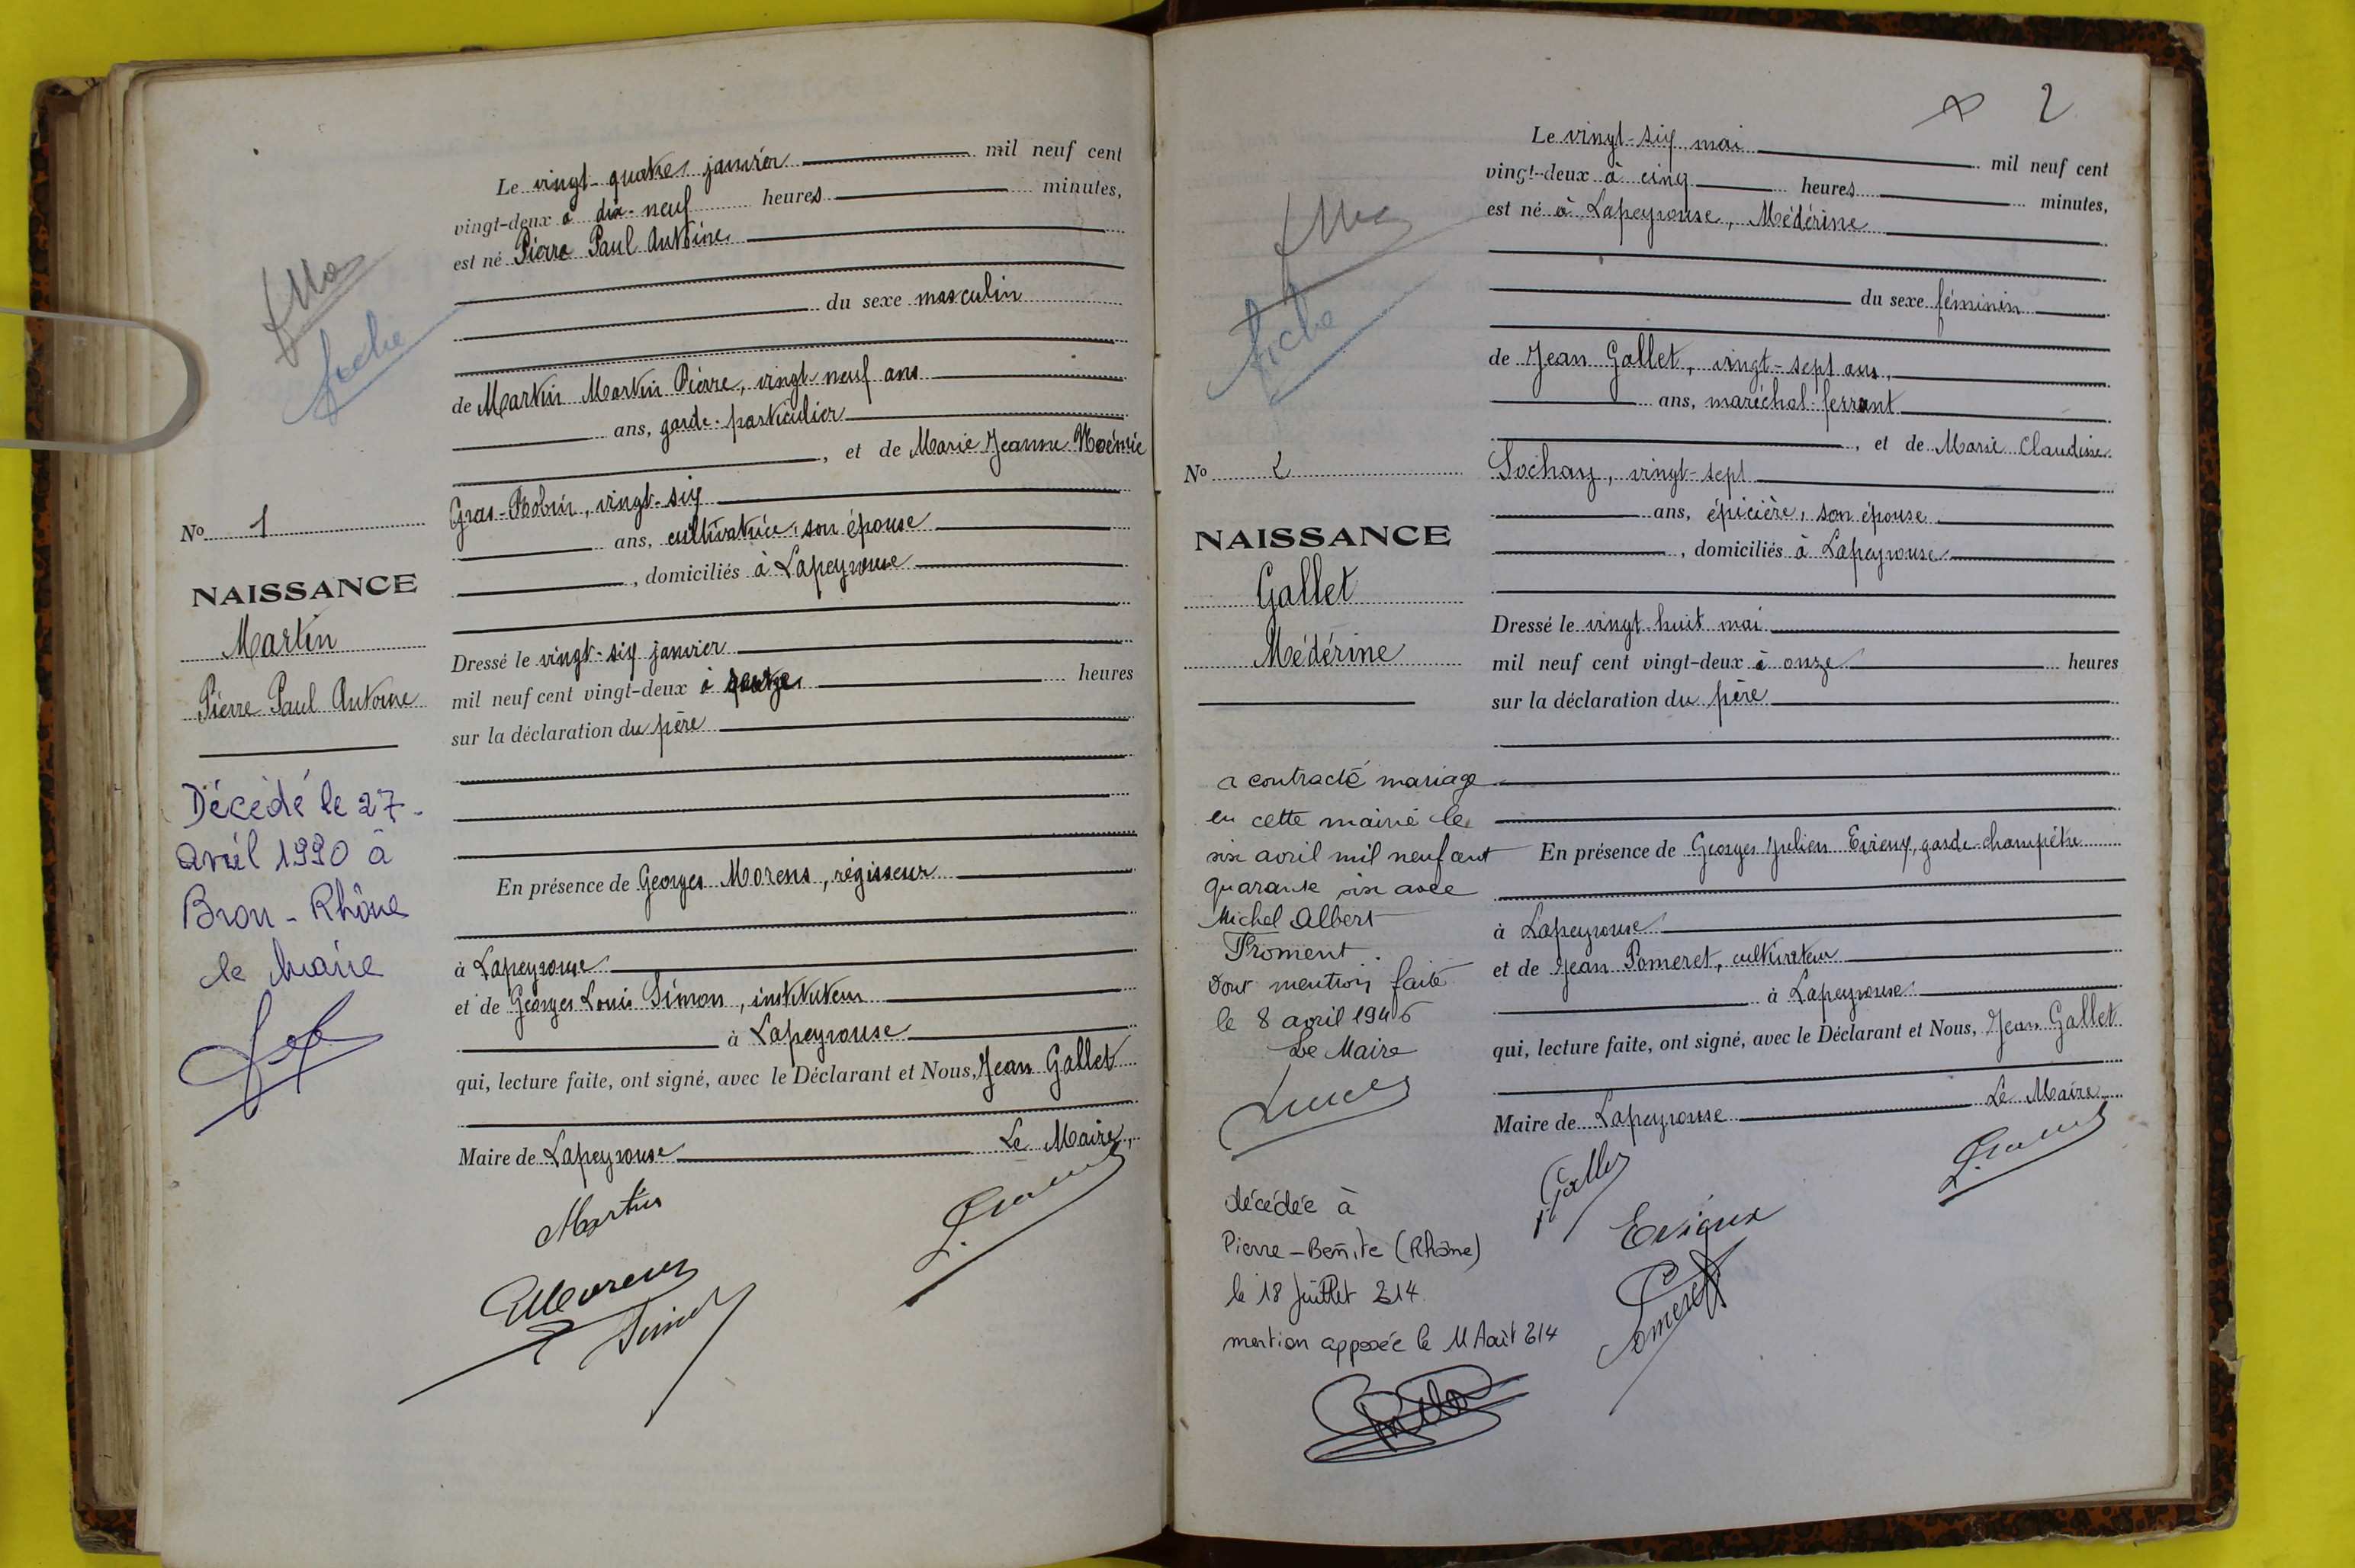 Le vingt-quatre janvier mil neuf cent
vingt-deux à dix-neuf heures minutes,
est né Pierre Paul Antoine
du sexe masculin
de Martin Martin Pierre, vingt-neuf ans
ans, garde-particulier
, et de Marie Jeanne Noémie
Gras-Robin, vingt-six
ans, cultivatrice, son épouse
, domiciliés à Lapeyrouse
Dressé le vingt-six janvier
mil neuf cent vingt-deux à heures
sur la déclaration du père
En présence de Georges Morens, régisseur
à Lapeyrouse
et de Georges Louis Simon, instituteur
à Lapeyrouse
qui, lecture faite, ont signé, avec le Déclarant et Nous, Jean Gallet
Maire de Lapeyrouse Le Maire,
Martin
fiche
No 1
NAISSANCE
Martin
Pierre Paul Antoine
Décédé le 27
avril 1990 à
Bron - Rhône
le Maire
2
Le vingt-six mai mil neuf cent
vingt-deux à cinq heures minutes,
est né à Lapeyrouse, Médérine
du sexe féminin
de Jean Gallet, vingt-sept ans,
ans, maréchal-ferrant
, et de Marie Claudine
Sochay, vingt-sept
ans, épicière, son épouse
, domiciliés à Lapeyrouse
Dressé le vingt-huit mai
mil neuf cent vingt-deux à onze heures
sur la déclaration du père
En présence de Georges Julien garde-champêtre
à Lapeyrouse
et de Jean Pomeret, cultivateur
à Lapeyrouse
qui, lecture faite, ont signé, avec le Déclarant et Nous, Jean Gallet
Maire de Lapeyrouse Le Maire
Pomeret
fiche
No 2
NAISSANCE
Gallet
Médérine
a contracté mariage
en cette mairie le
six avril mil neuf cent
quarante six avec
Michel Albert
Froment.
Dont mention faite
le 8 avril 1946
Le Maire
décédée à
Pierre-Bénite (Rhône)
le 18 Juillet 214
mention apposée le 11 Août 214